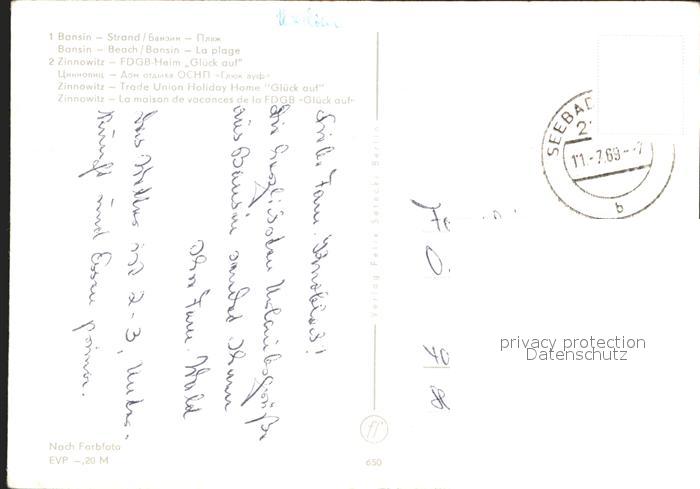 1 Bansin – Strand / Бансин – Пляж
Bansin – Beach / Bansin – La plage
2 Zinnowitz – FDGB-Heim „Glück auf"
Цинновиц – Дом отдыха ОСНП «Глюк ауф»
Zinnowitz – Trade Union Holiday Home "Glück auf"
Zinnowitz – La maison de vacances de la FDGB «Glück auf»
Liebe Fam.
Die herzlichsten Urlaubsgrüße
aus Bansin sendet Ihnen
Ihre Fam. Wald
Das Wetter ist 2-3, Unter-
kunft und Essen prima.
Verlag Felix Setecki Berlin
SEEBAD
11.-7.69--7
b
privacy protection
Datenschutz
Nach Farbfoto
EVP –,20 M
ff
650